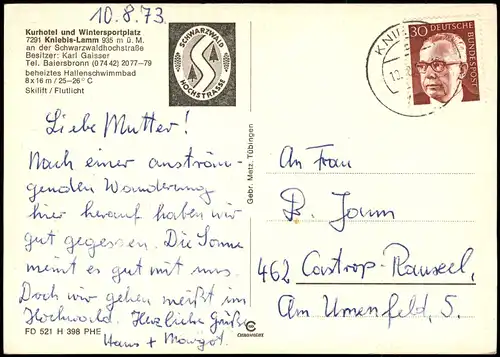 10.8.73
Kurhotel und Wintersportplatz
7291 Kniebis-Lamm 935 m ü. M.
an der Schwarzwaldhochstraße
Besitzer: Karl Gaisser
Tel. Baiersbronn (07442) 2077-79
beheiztes Hallenschwimmbad
8 x 16 m / 25-26° C
Skilift / Flutlicht
SCHWARZWALD
HOCHSTRASSE
30 DEUTSCHE BUNDESPOST
Liebe Mutter!
Nach einer anström-
genden Wanderung
hier herauf haben wir
gut gegessen. Die Sonne
meint es gut mit uns.
Doch wir gehen meißt im
Hochwald. Herzliche Grüße
Hans + Margot.
FD 521 H 398 PHE
Gebr. Metz, Tübingen
CHROMOLUX
An Frau
B. Jaum
462 Castrop-Rauxel,
Am Urnenfeld, 5.